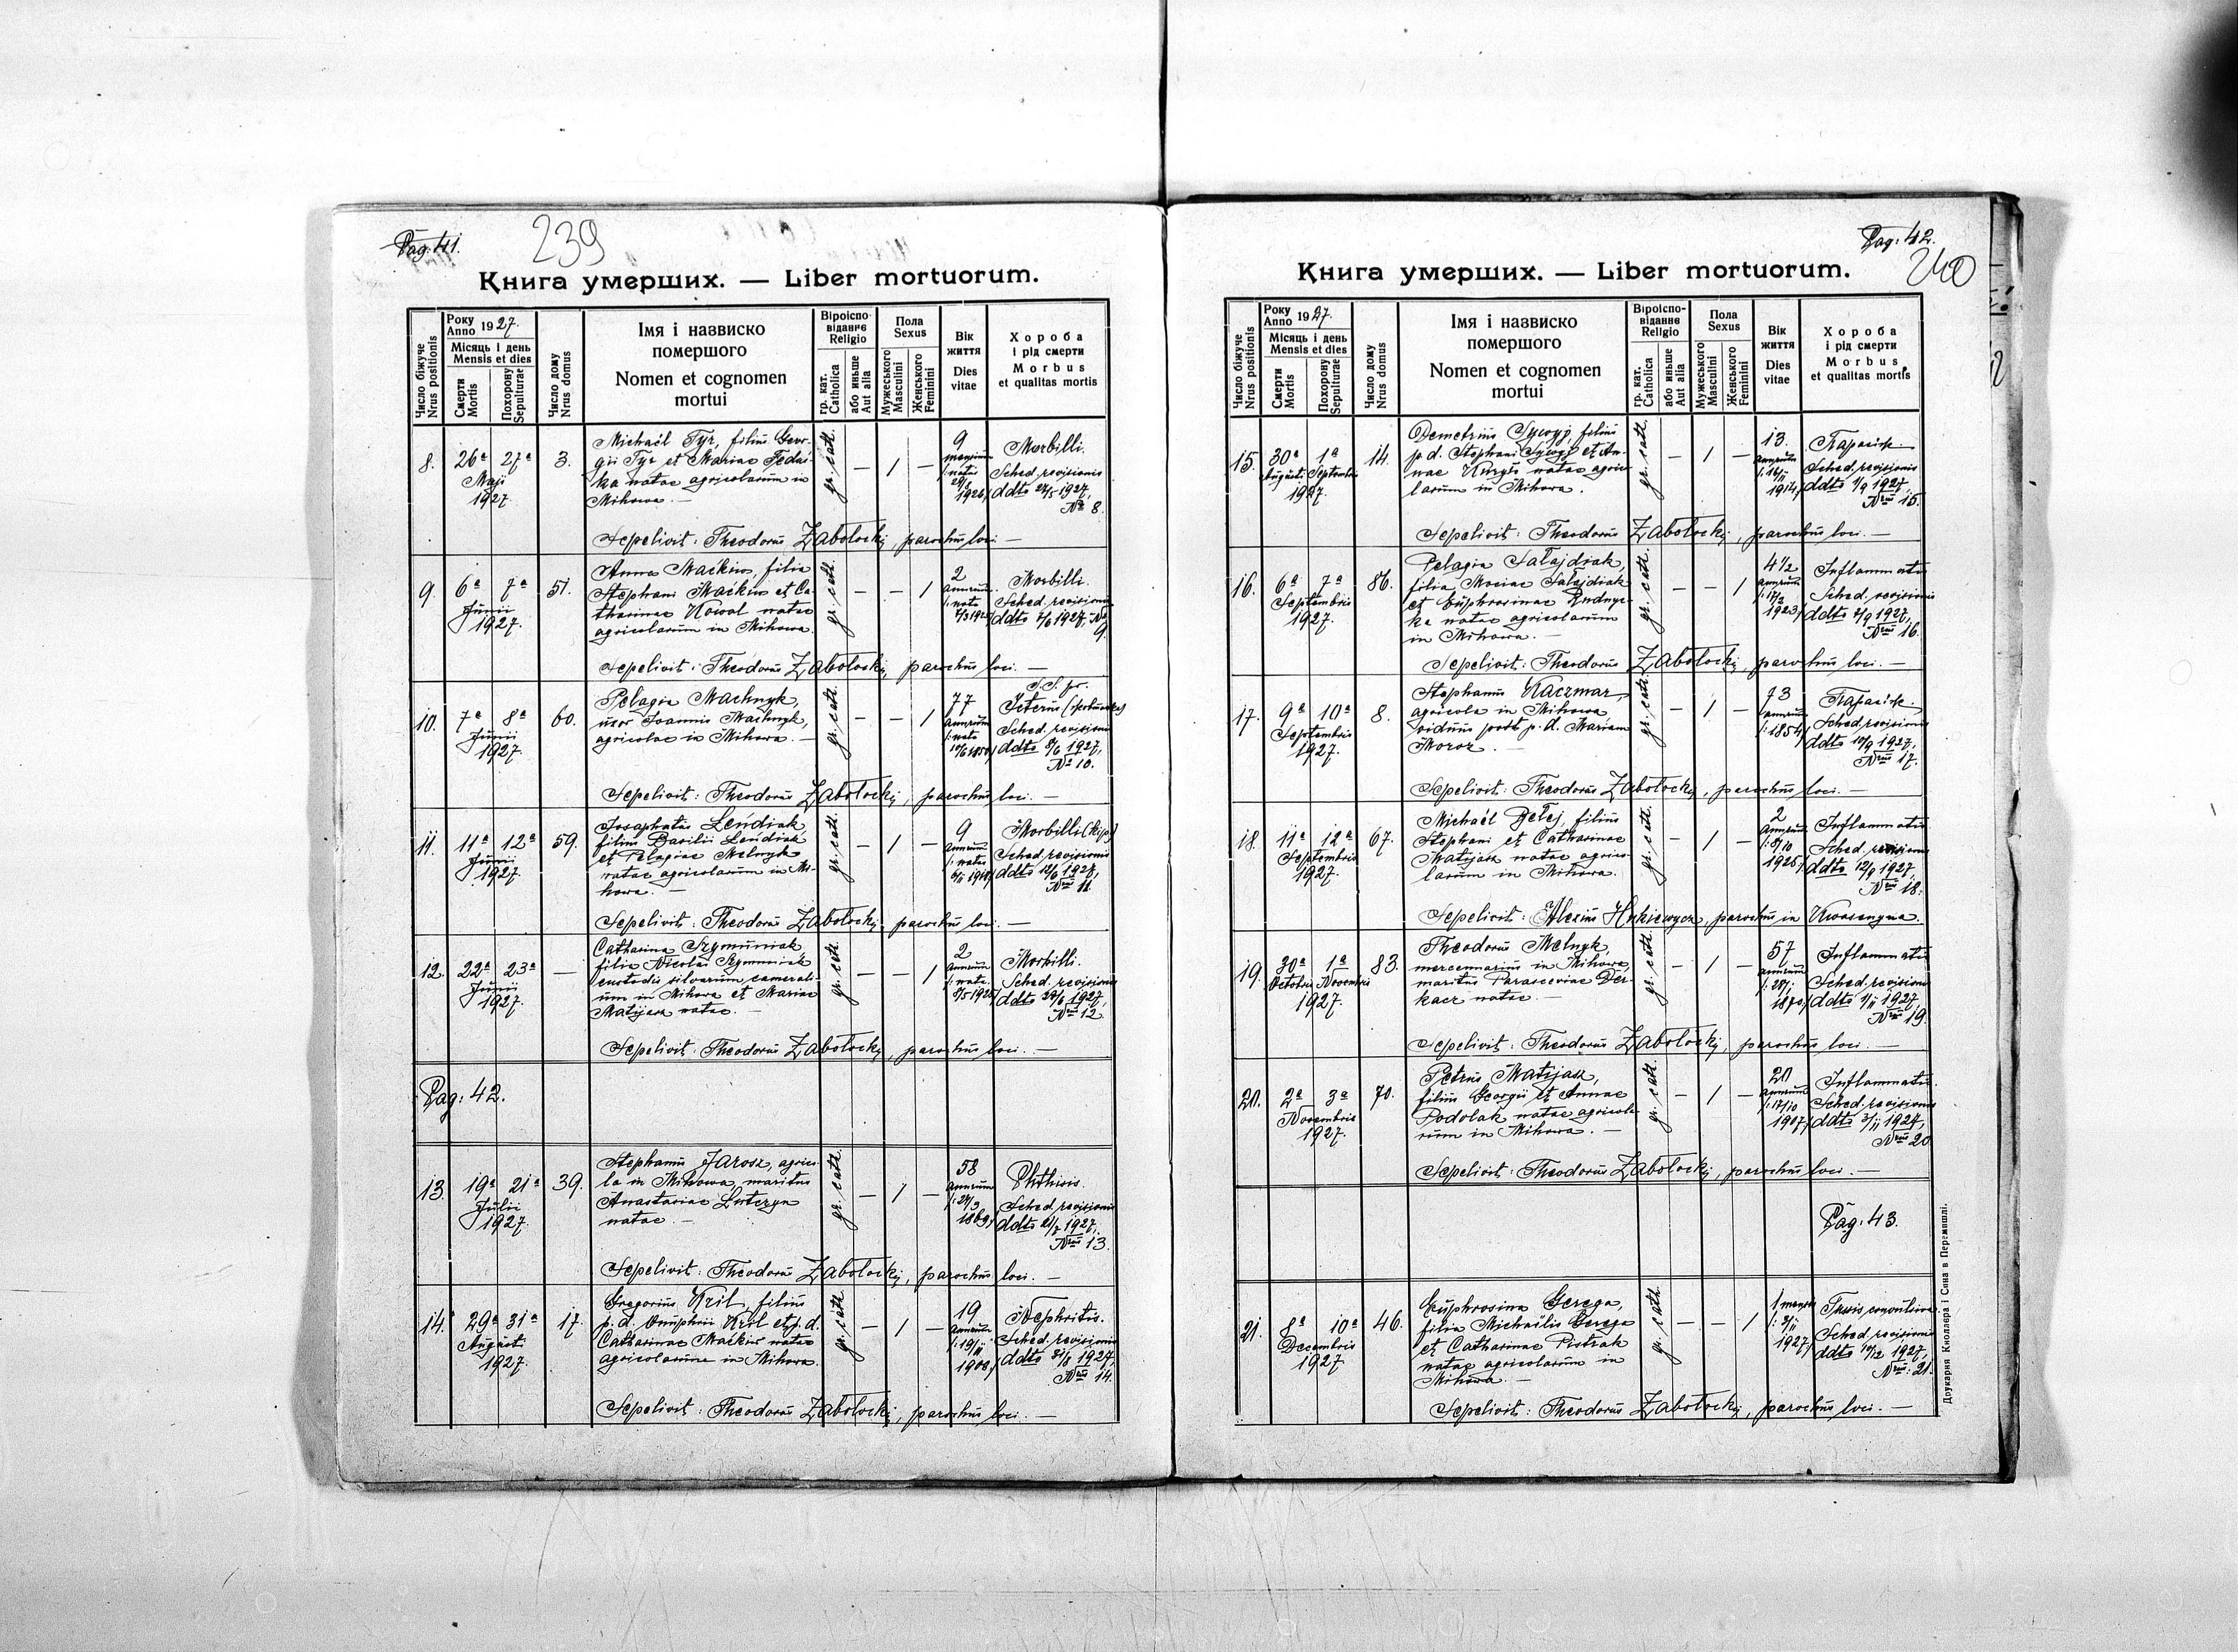 Pag: 41.
239
Книга умерших. — Liber mortuorum.
Число біжуче
Nrus positionis
Року
Anno 1927.
Місяць і день
Mensis et dies
Смерти
Mortis
Похорону
Sepulturae
Число дому
Nrus domus
Імя і назвиско
помершого
Nomen et cognomen
mortui
Віроіспо-
віданнє
Religio
гр. кат.
Catholica
або иньше
Aut alia
Пола
Sexus
Мужеського
Masculini
Женського
Feminini
Вік
життя
Dies
vitae
Хороба
і рід смерти
Morbus
et qualitas mortis
8. 26ª 27ª
Maji
1927
3.
Michaël Tyr, filius Geor-
gii Tyr et Mariae Fedaś-
ka natae agricolarum in
Mihowa. —
gr. cath.
— / —
9
mensium
Morbilli.
Sched. revisionis
1927,
№ 8.
Sepelivit: Theodorus Zabolockij, parochus loci —
9. 6ª 7ª
Junii
1927.
51.
Anna Maćkiw, filia
Stephani Maćkiw et Ca-
tharinae Kowal natae
agricolarum in Mihowa.
gr. cath.
— — /
2
annorum
Morbilli.
Sched. revisionis
ddto 7/6 1927, №
9.
Sepelivit: Theodorus Zabolockij parochus loci. —
10. 7ª 8ª
Junii
1927.
60.
Pelagia Machnyk,
uxor Joannis Machnyk,
agricolae in Mihowa. —
gr. cath.
— — /
77
annorum
Icterus
Sched. revisionis
ddto 8/6 1927,
№ 10.
Sepelivit: Theodorus Zabolockij, parochus loci. —
11. 11ª 12ª
Junii
1927
59.
Josaphatus Leńdiak,
filius Basilii Leńdiak
et Pelagiae Melnyk
natae agricolarum in Mi-
howa. —
gr. cath.
— / —
9
annorum
Morbilli
Sched. revisionis
ddto 12/6 1927,
Nrus 11.
Sepelivit: Theodorus Zabolockij, parochus loci. —
12. 22ª 23ª
Junii
1927.
—
Catharina Szymuniak
filia Nicolai Szymuniak
custodis silvarum camerali-
um in Mihowa et Mariae
Matijasz natae. —
gr. cath.
— — /
2
annorum
Morbilli.
Sched. revisionis
1927,
Nrus 12.
Sepelivit: Theodorus Zabolockij, parochus loci. —
Pag: 42.
13. 19ª 21ª
Julii
1927.
39.
Stephanus Jarosz, agrico-
la in Mihowa, maritus
Anastasiae Lutczyn
natae. —
gr. cath.
— / —
58
annorum
24/3
1869
Phthisis.
Sched. revisionis
ddto 21/7 1927,
Nrus 13.
Sepelivit: Theodorus Zabolockij, parochus loci. —
14. 29ª 31ª
August
1927.
17.
Gregorius Kril, filius
p. d. Onuphrii Kril et p. d.
Catharinae Maćkiw natae
agricolarum in Mihowa.
gr. cath.
— / —
19
annorum
19/11
1908
Nephritis.
Sched. revisionis
ddto 31/8 1927,
Nrus 14.
Sepelivit: Theodorus Zabolockij, parochus loci. —
Pag: 42.
240
Книга умерших. — Liber mortuorum.
Число біжуче
Nrus positionis
Року
Anno 1927.
Місяць і день
Mensis et dies
Смерти
Mortis
Похорону
Sepulturae
Число дому
Nrus domus
Імя і назвиско
помершого
Nomen et cognomen
mortui
Віроіспо-
віданнє
Religio
гр. кат.
Catholica
або иньше
Aut alia
Пола
Sexus
Мужеського
Masculini
Женського
Feminini
Вік
життя
Dies
vitae
Хороба
і рід смерти
Morbus
et qualitas mortis
15. 30ª 1ª
Augusti Septembris
1927.
14.
Demetrius Sywyj, filius
p. d. Stephani Sywyj et An-
nae Kuryło natae agrico-
larum in Mihowa.
gr. cath.
— / —
13.
annorum
1914
Sched. revisionis
ddto 1/9 1927,
Nrus 15.
Sepelivit: Theodorus Zabolockij, parochus loci. —
16. 6ª 7ª
Septembris
1927.
86.
Pelagia Sałajdiak,
filia Mariae Sałajdiak
et Euphrosinae Rudnyc-
ka natae agricolarum
in Mihowa. —
gr. cath.
— — /
4 1/2
annorum
1923
Inflammatio
Sched. revisionis
ddto 7/9 1927,
Nrus 16.
Sepelivit: Theodorus Zabolockij, parochus loci. —
17. 9ª 10ª
Septembris
1927.
8.
Stephanus Kaczmar,
agricola in Mihowa
viduus post p. d. Mariam
Moroz. —
gr. cath.
— / —
73
annorum
1854
Sched. revisionis
ddto 10/9 1927,
Nrus 17.
Sepelivit: Theodorus Zabolockij, parochus loci. —
18. 11ª 12ª
Septembris
1927.
67.
Michaël Belej, filius
Stephani et Catharinae
Matijasz natae agrico-
larum in Mihowa.
gr. cath.
— / —
2
annorum
8/10
1925
Inflammatio
Sched. revisionis
ddto 12/9 1927,
Nrus 18.
Sepelivit: Alexius Hukiewycz, parochus in Kwasenyna.
19. 30ª 1ª
Octobris Novembris
1927.
83.
Theodorus Melnyk,
mercennarius in Mihowa,
maritus Parasceviae Der-
kacz natae. —
gr. cath.
— / —
57
annorum
1870
Inflammatio
Sched. revisionis
ddto 1/11 1927,
Nrus 19.
Sepelivit: Theodorus Zabolockij, parochus loci. —
20. 2ª 3ª
Novembris
1927.
70.
Petrus Matijasz,
filius Georgii et Annae
Podolak natae agricola-
rum in Mihowa. —
gr. cath.
— / —
20
annorum
17/10
1907
Inflammatio.
Sched. revisionis
ddto 3/11 1927,
Nrus 20
Sepelivit: Theodorus Zabolockij, parochus loci. —
Pag: 43.
21. 8ª 10ª
Decembris
1927
46.
Euphrosina Gerega,
filia Michaëlis Gerega
et Catharinae Pistrak
natae agricolarum in
Mihowa. —
gr. cath.
— — /
1 mensis
1927
Tussis convulsiva.
Sched. revisionis
ddto 10/12 1927,
Nrus: 21.
Sepelivit: Theodorus Zabolockij, parochus loci. —
Друкарня Кноллєра і Сина в Перемишлі.